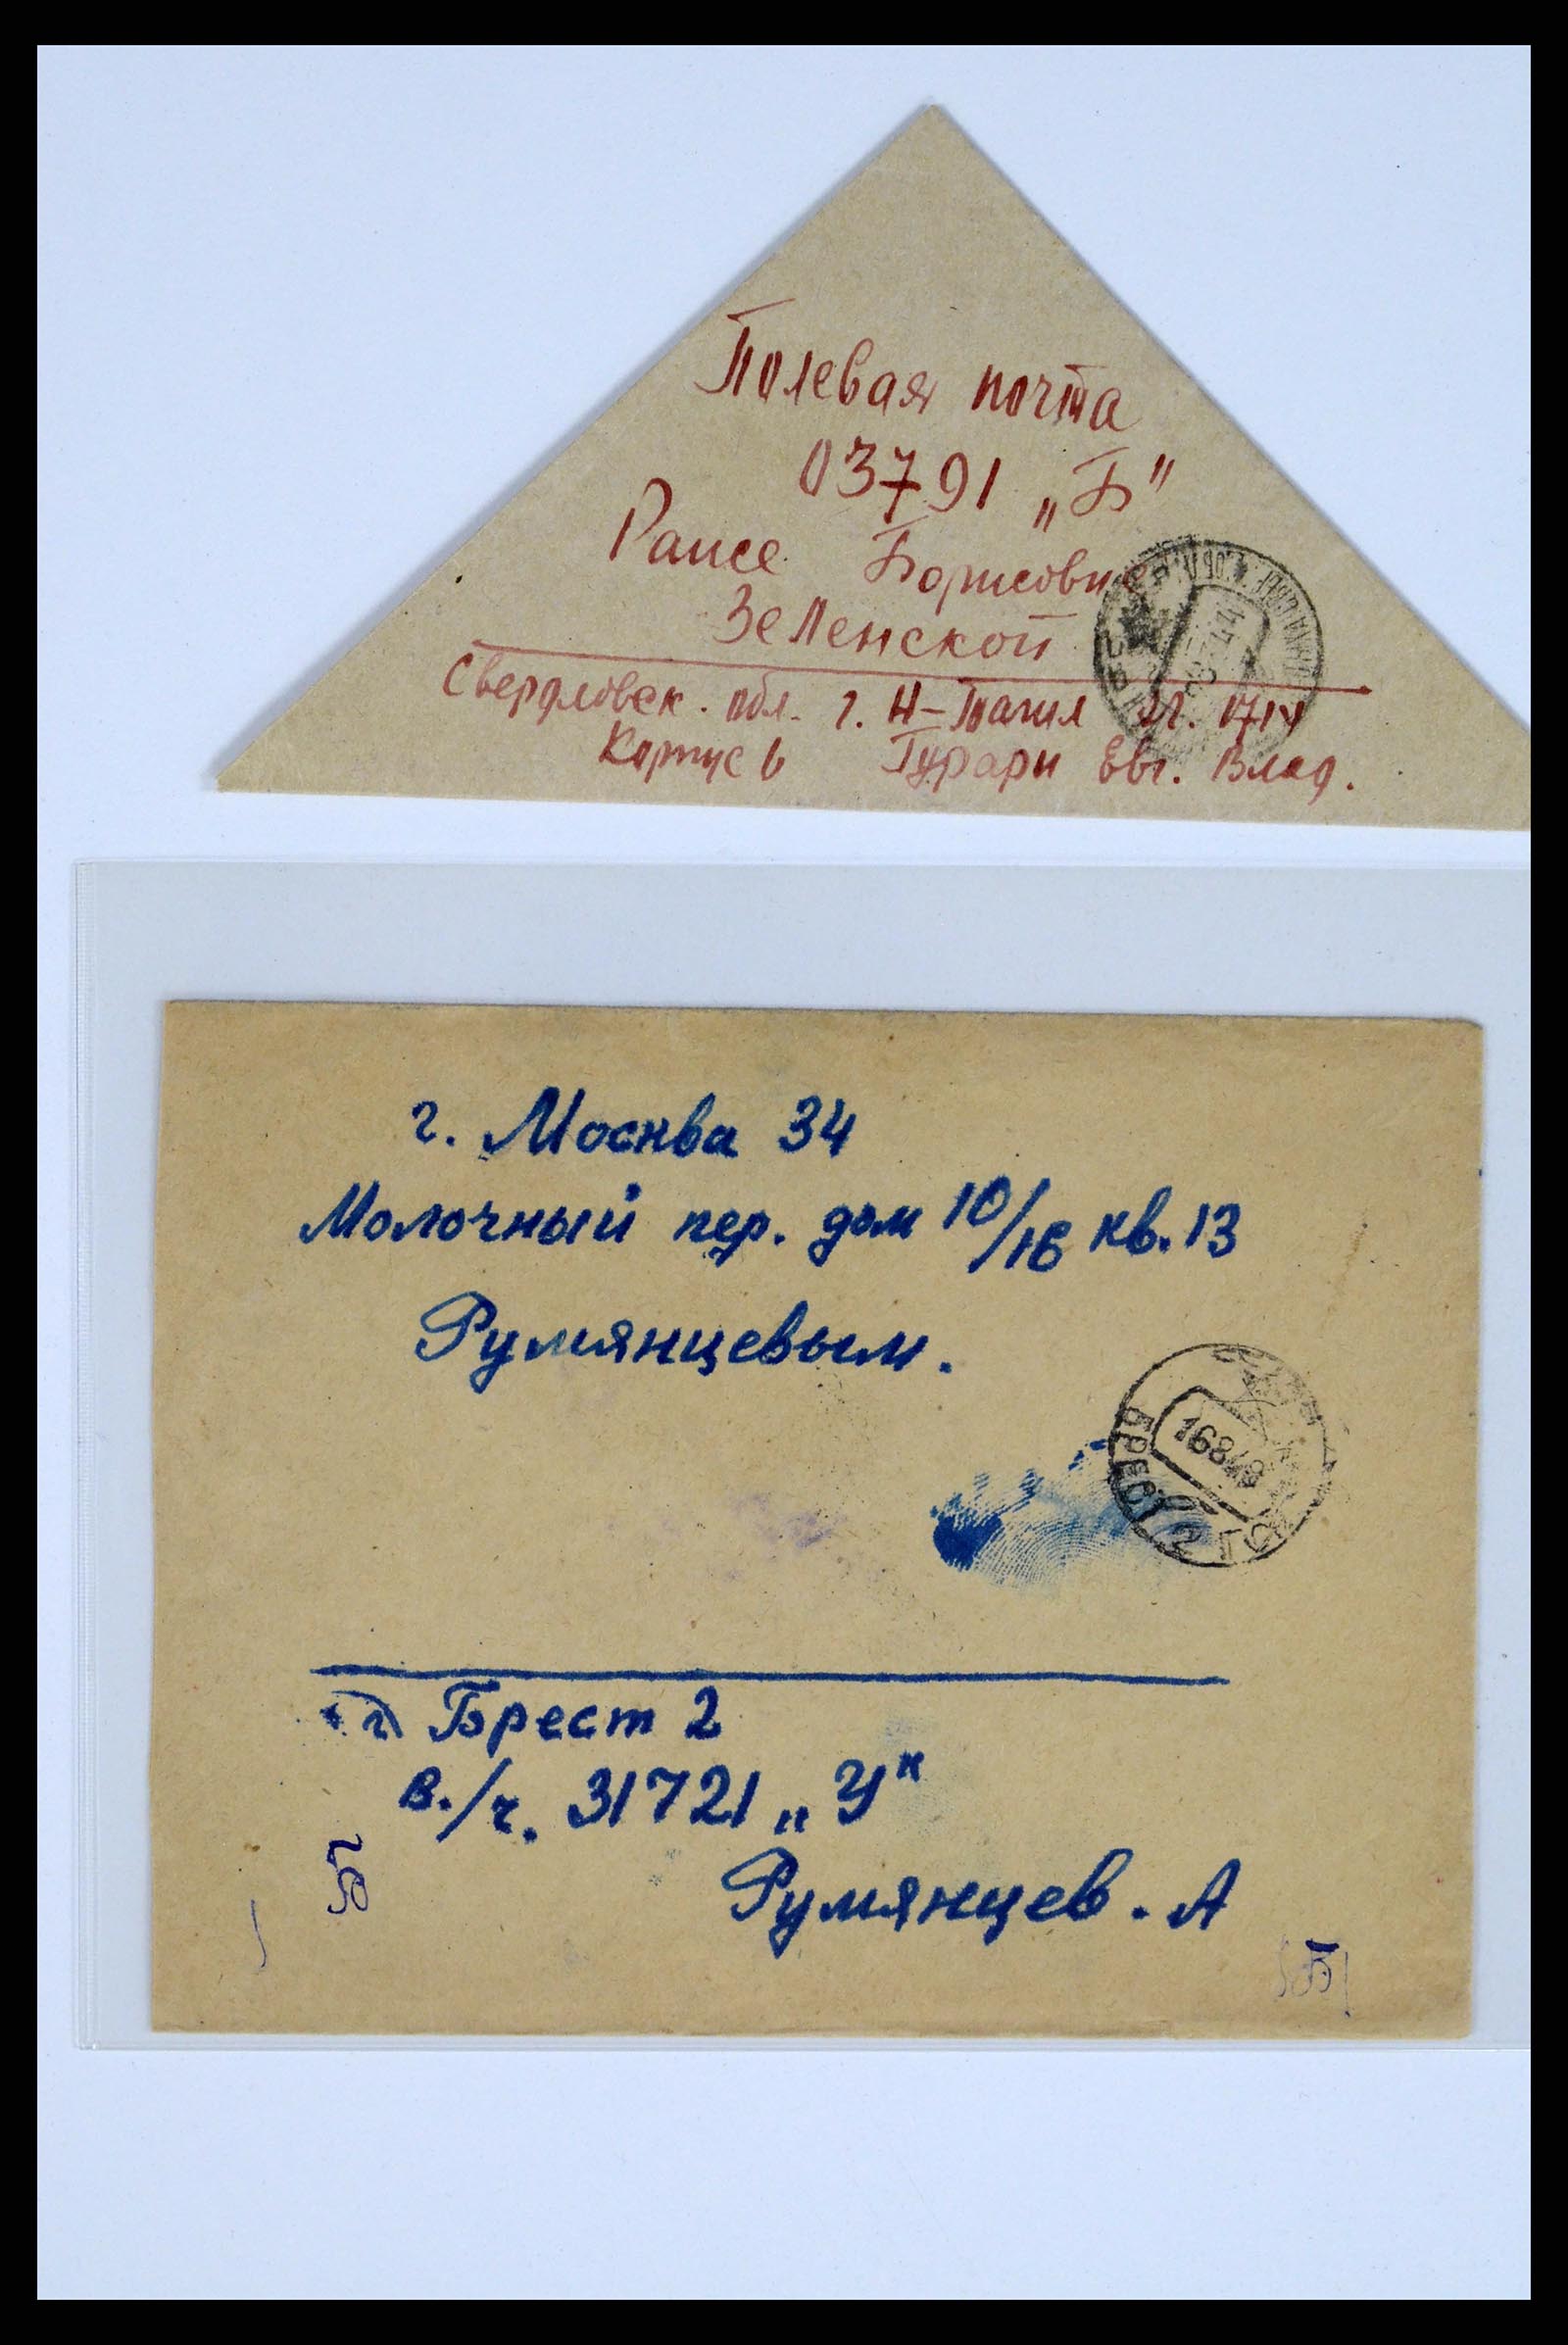 Полевая почта
03791 „Б"
Раисе Борисовне
Зеленской
Свердловск. обл. г. Н-Тагил
Корпус 6 Гурари Евг. Влад.
г. Москва 34
Молочный пер. дом 10/16 кв. 13
Румянцевым.
16 8 49
БРЕСТ 2
г Брест 2
в./ч. 31721 „У"
Румянцев. А
Б
Б